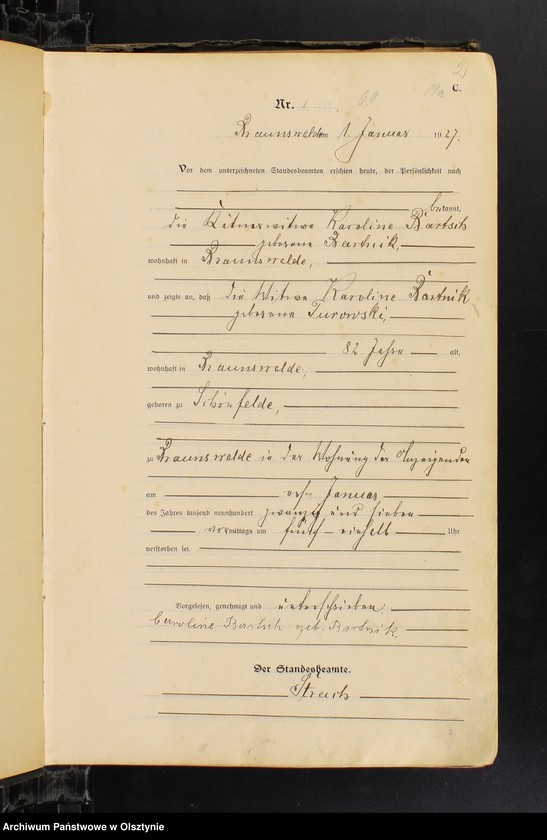 2
C.
Nr. 1.
Braunswalde am 1 Januar 1927.
Vor dem unterzeichneten Standesbeamten erschien heute, der Persönlichkeit nach
bekannt,
die Kätnerwitwe Karoline Bartsch
geborene Bartnik,
wohnhaft in Braunswalde,
und zeigte an, daß die Witwe Karoline Bartnik
geborene Turowski,
82 Jahre alt,
wohnhaft in Braunswalde,
geboren zu Schönfelde,
zu Braunswalde in der Wohnung der Anzeigenden
am ersten Januar
des Jahres tausend neunhundert zwanzig und sieben
vormittags um fünf einhalb Uhr
verstorben sei.
Vorgelesen, genehmigt und unterschrieben.
Caroline Bartsch geb. Bartnik.
Der Standesbeamte.
Archiwum Państwowe w Olsztynie